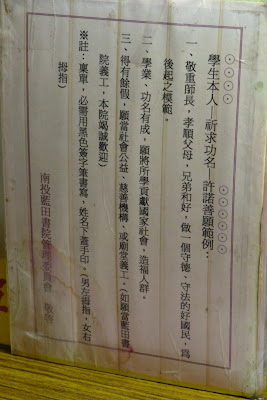 學生本人：祈求功名　許諾善願範例：
一、敬重師長，孝順父母，兄弟和好，做一個守德、守法的好國民，為
後起之模範。
二、學業、功名有成，願將所學貢獻國家社會，造福人群。
三、得有餘假，願當社會公益、慈善機構、或廟堂義工。（如願當藍田書
院義工，本院竭誠歡迎）
※註：稟單，必需用黑色簽字筆書寫，姓名下蓋手印。（男左拇指，女右
拇指）
南投藍田書院管理委員會　敬啟